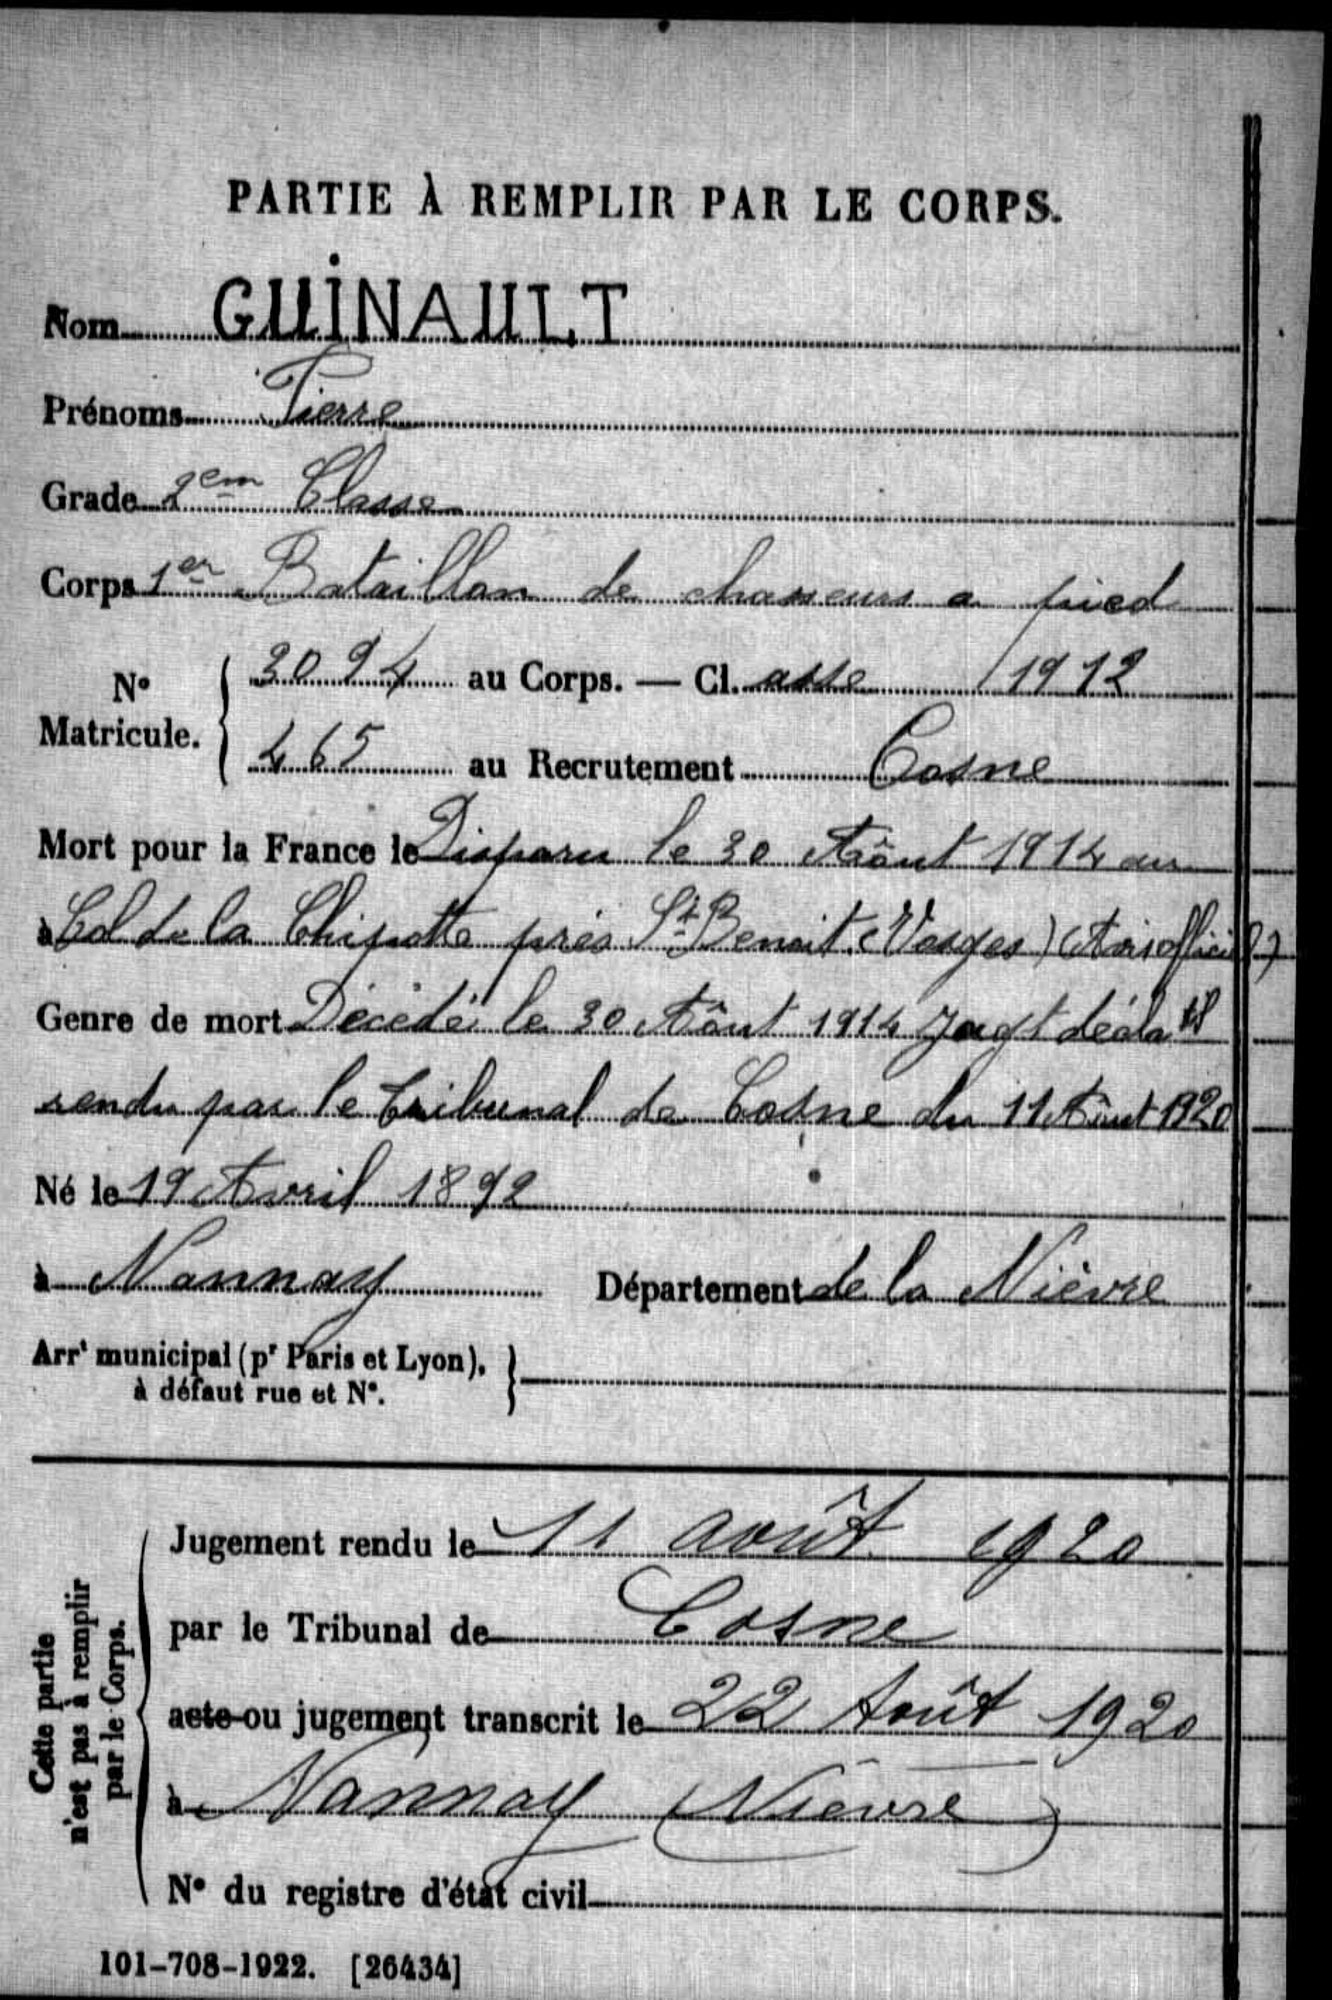 PARTIE À REMPLIR PAR LE CORPS.
Nom GUINAULT
Prénoms Pierre
Grade 2em Classe
Corps 1er Bataillon de chasseurs a pied
N° Matricule. { 3094 au Corps. — Cl. asse 1912
465 au Recrutement Cosne
Mort pour la France le Disparu le 30 Aôut 1914 au
à Col de la Chipotte prés St Benoit (Vosges) (Avis officiel)
Genre de mort Décédé le 30 Aôut 1914 Jugt décla tif
rendu par le Tribunal de Cosne du 11 Aôut 1920
Né le 19 Avril 1892
à Nannay Département de la Nièvre
Arrt municipal (pr Paris et Lyon), à défaut rue et N°. }
Cette partie n'est pas à remplir par le Corps.
Jugement rendu le 11 août 1920
par le Tribunal de Cosne
acte ou jugement transcrit le 22 Août 1920
à Nannay (Nièvre)
N° du registre d'état civil
101-708-1922. [26434]